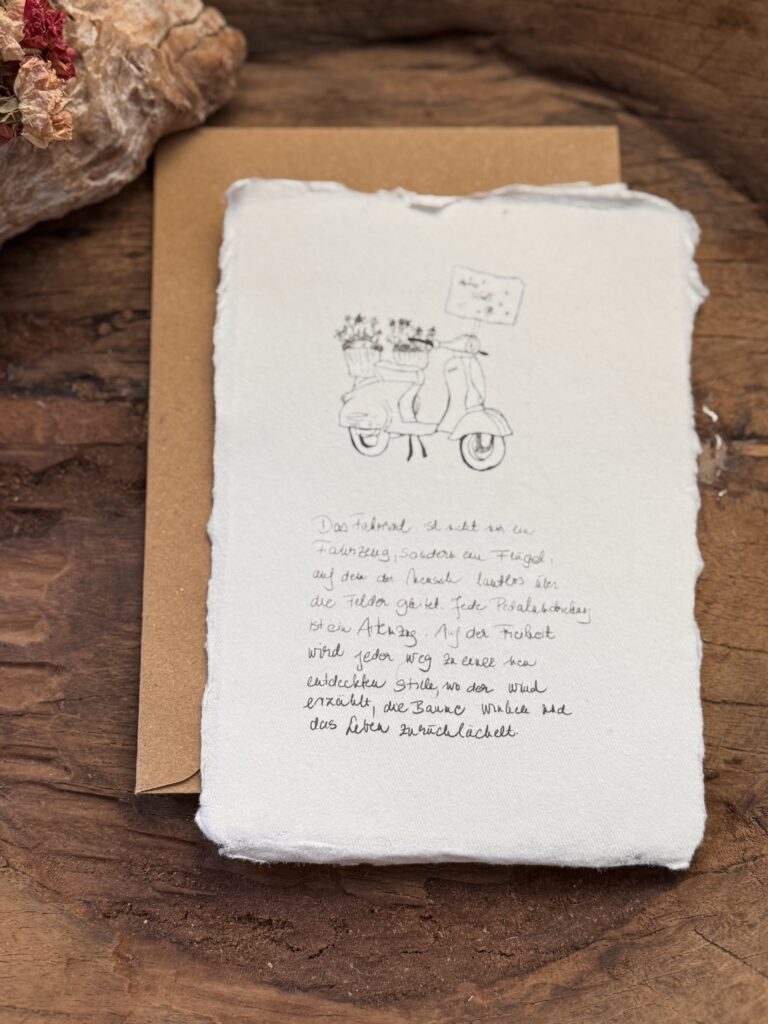 Das Fahrrad ist nicht nur ein
Fahrzeug, sondern ein Flügel,
auf dem der Mensch lautlos über
die Felder gleitet. Jede Pedalumdrehung
ist ein Atemzug. Auf der Freiheit
wird jeder Weg zu einer neu
entdeckten Stille, wo der Wind
erzählt, die Bäume winken und
das Leben zurücklächelt.